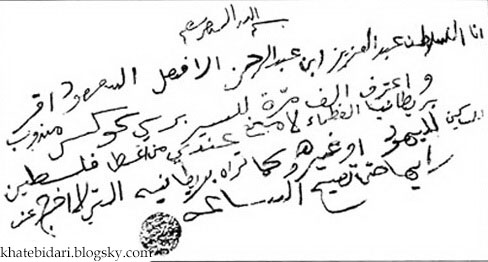 بسم الله الرحمن الرحيم
انا السلطان عبد العزيز ابن عبد الرحمن الافصل السعود اقر
و اعترف الف مرّة للسير برسي كوكس مندوب
بريطانيا العظماء لا مانع عندي من اعطا فلسطين
لليهود او غيرهم وكما تراه بريطانيه التي لا اخرج عن
رايها حتى تصيح الساعه
khatebidari.blogsky.com